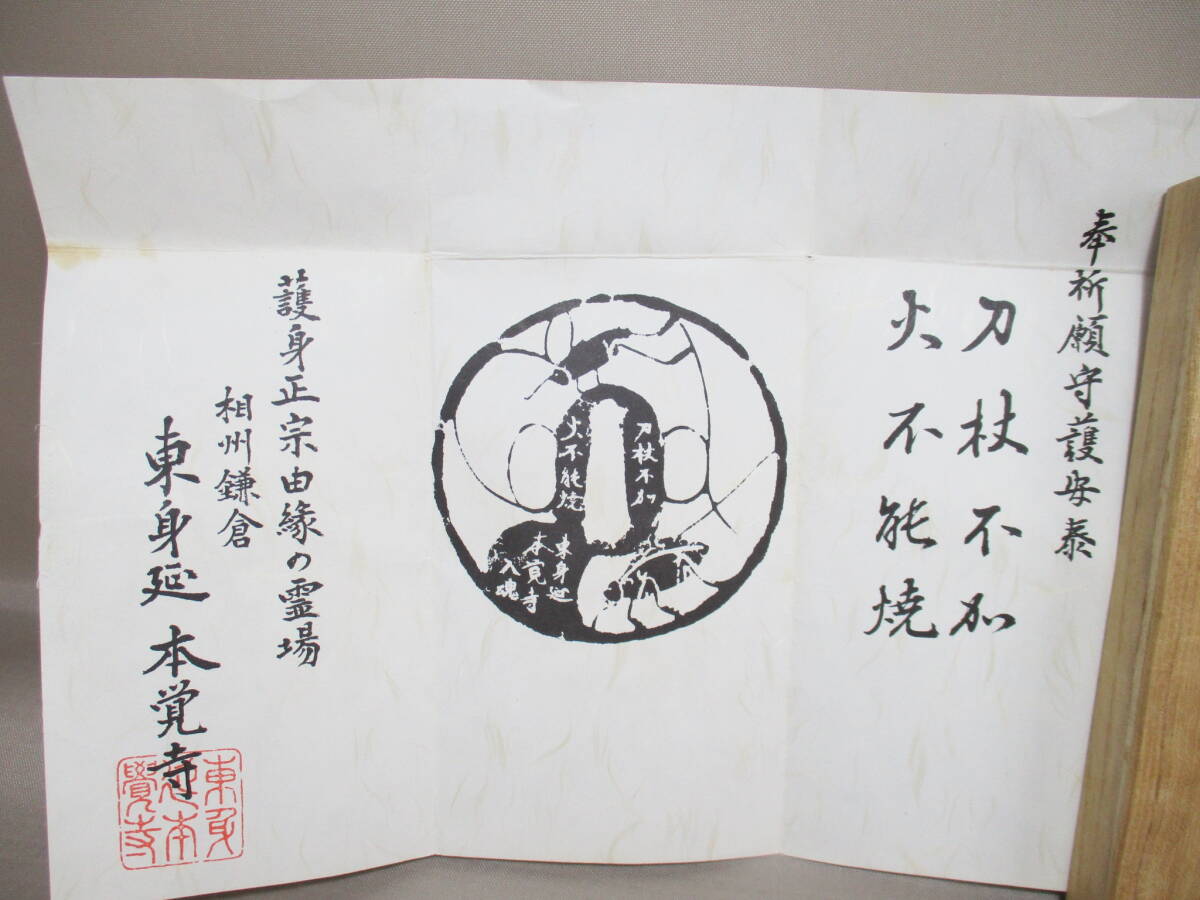 奉祈願守護安泰
刀杖不加
火不能焼
刀杖不加
火不能焼
東身延
本覚寺
入魂
護身正宗由緣の霊場
相州鎌倉
東身延 本覚寺
東身
延本
覺寺